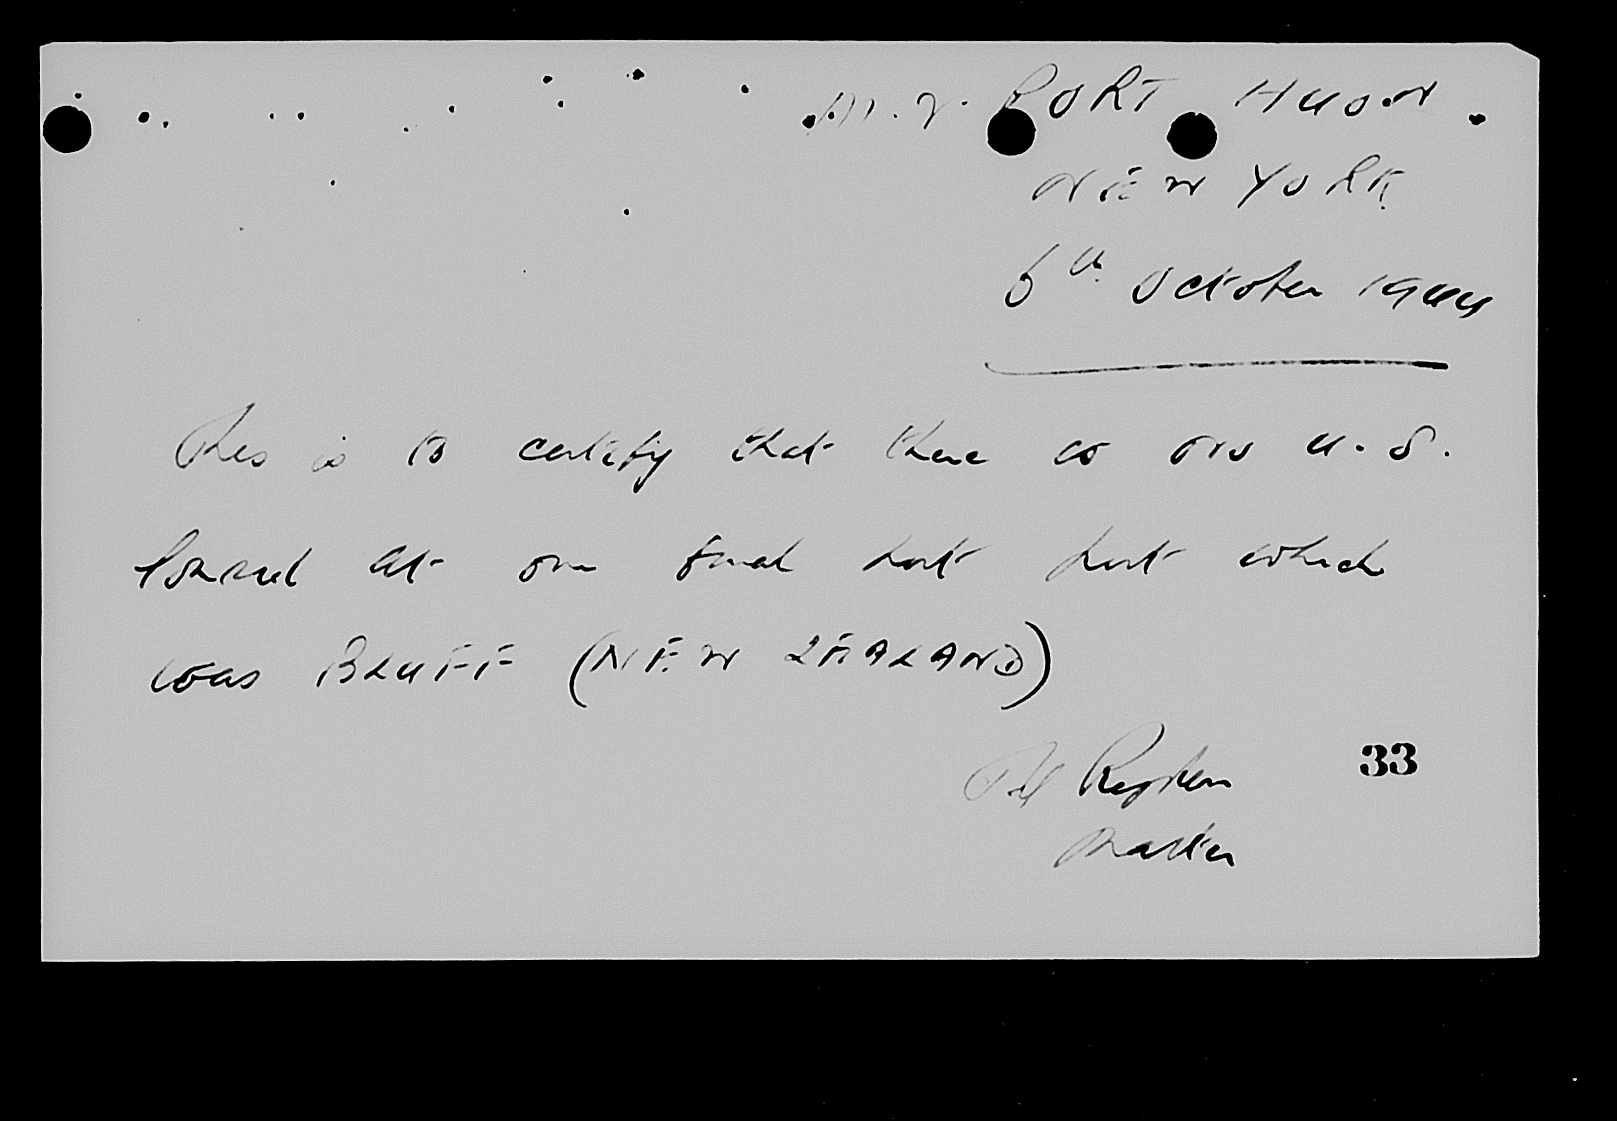 M.V. PORT HUON.
NEW YORK.
6th October 1944
This is to certify that there is no U.S.
Consul at our final port which
was BLUFF (NEW ZEALAND)
33
Master